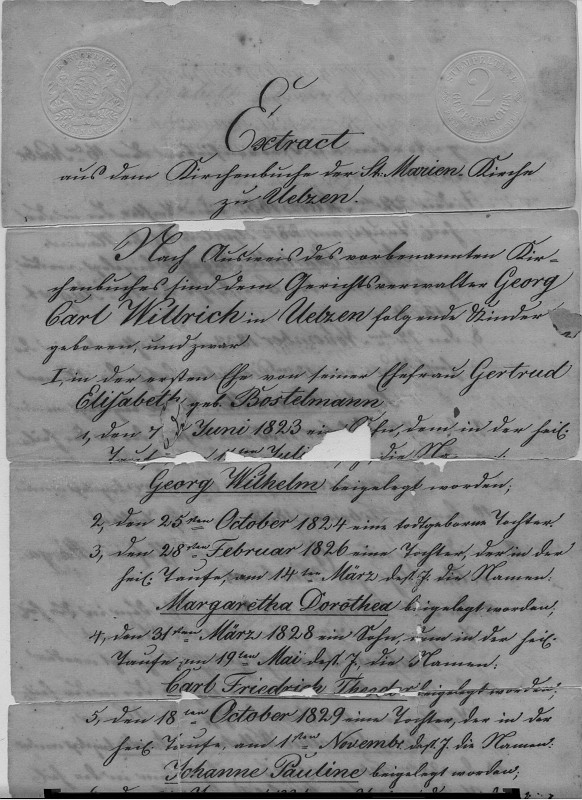 2
Extract
aus dem Kirchenbuche der St. Marien-Kirche
zu Uelzen.
Nach Ausweis des vorbenannten Kir-
chenbuches sind dem Gerichtsverwalter Georg
Carl Wittrich in Uelzen folgende Kinder
geboren, und zwar
I, in der ersten Ehe von seiner Ehefrau Gertrud
Elisabeth geb. Bostelmann
1, den 7 Juni 1823 ein Sohn, dem in der heil.
die
Georg Wilhelm beigelegt worden;
2, den 25sten October 1824 eine todtgeborne Tochter.
3, den 28sten Februar 1826 eine Tochter, der in der
heil. Taufe, am 14ten März dess. J. die Namen:
Margaretha Dorothea beigelegt worden;
4, den 31sten März 1828 ein Sohn, dem in der heil.
Taufe am 19ten Mai dess. J. die Namen:
Carl Friedrich Theodor beigelegt worden;
5, den 18ten October 1829 eine Tochter, der in der
heil. Taufe, am 1sten Novembr. dess. J. die Namen:
Johanne Pauline beigelegt worden;